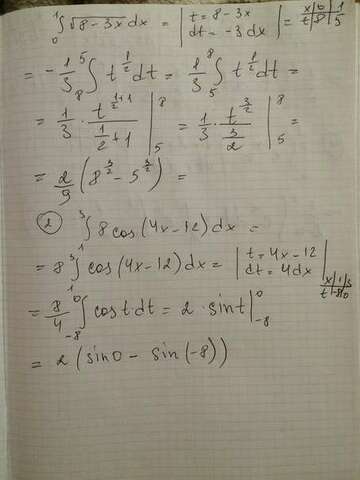 ∫₀¹ √(8-3x) dx = | t = 8-3x, dt = -3dx | = x|0|1, t|8|5
= -1/3 ∫₈⁵ t^(1/2) dt = 1/3 ∫₅⁸ t^(1/2) dt =
= 1/3 · t^(1/2+1)/(1/2+1) |₅⁸ = 1/3 · t^(3/2)/(3/2) |₅⁸ =
= 2/9 (8^(3/2) - 5^(3/2)) =
② ∫₁³ 8cos(4x-12) dx =
= 8 ∫₁³ cos(4x-12) dx = | t = 4x-12, dt = 4dx | x|1|3, t|-8|0
= 8/4 ∫₋₈⁰ cos t · dt = 2 · sin t |₋₈⁰
= 2 (sin 0 - sin(-8))